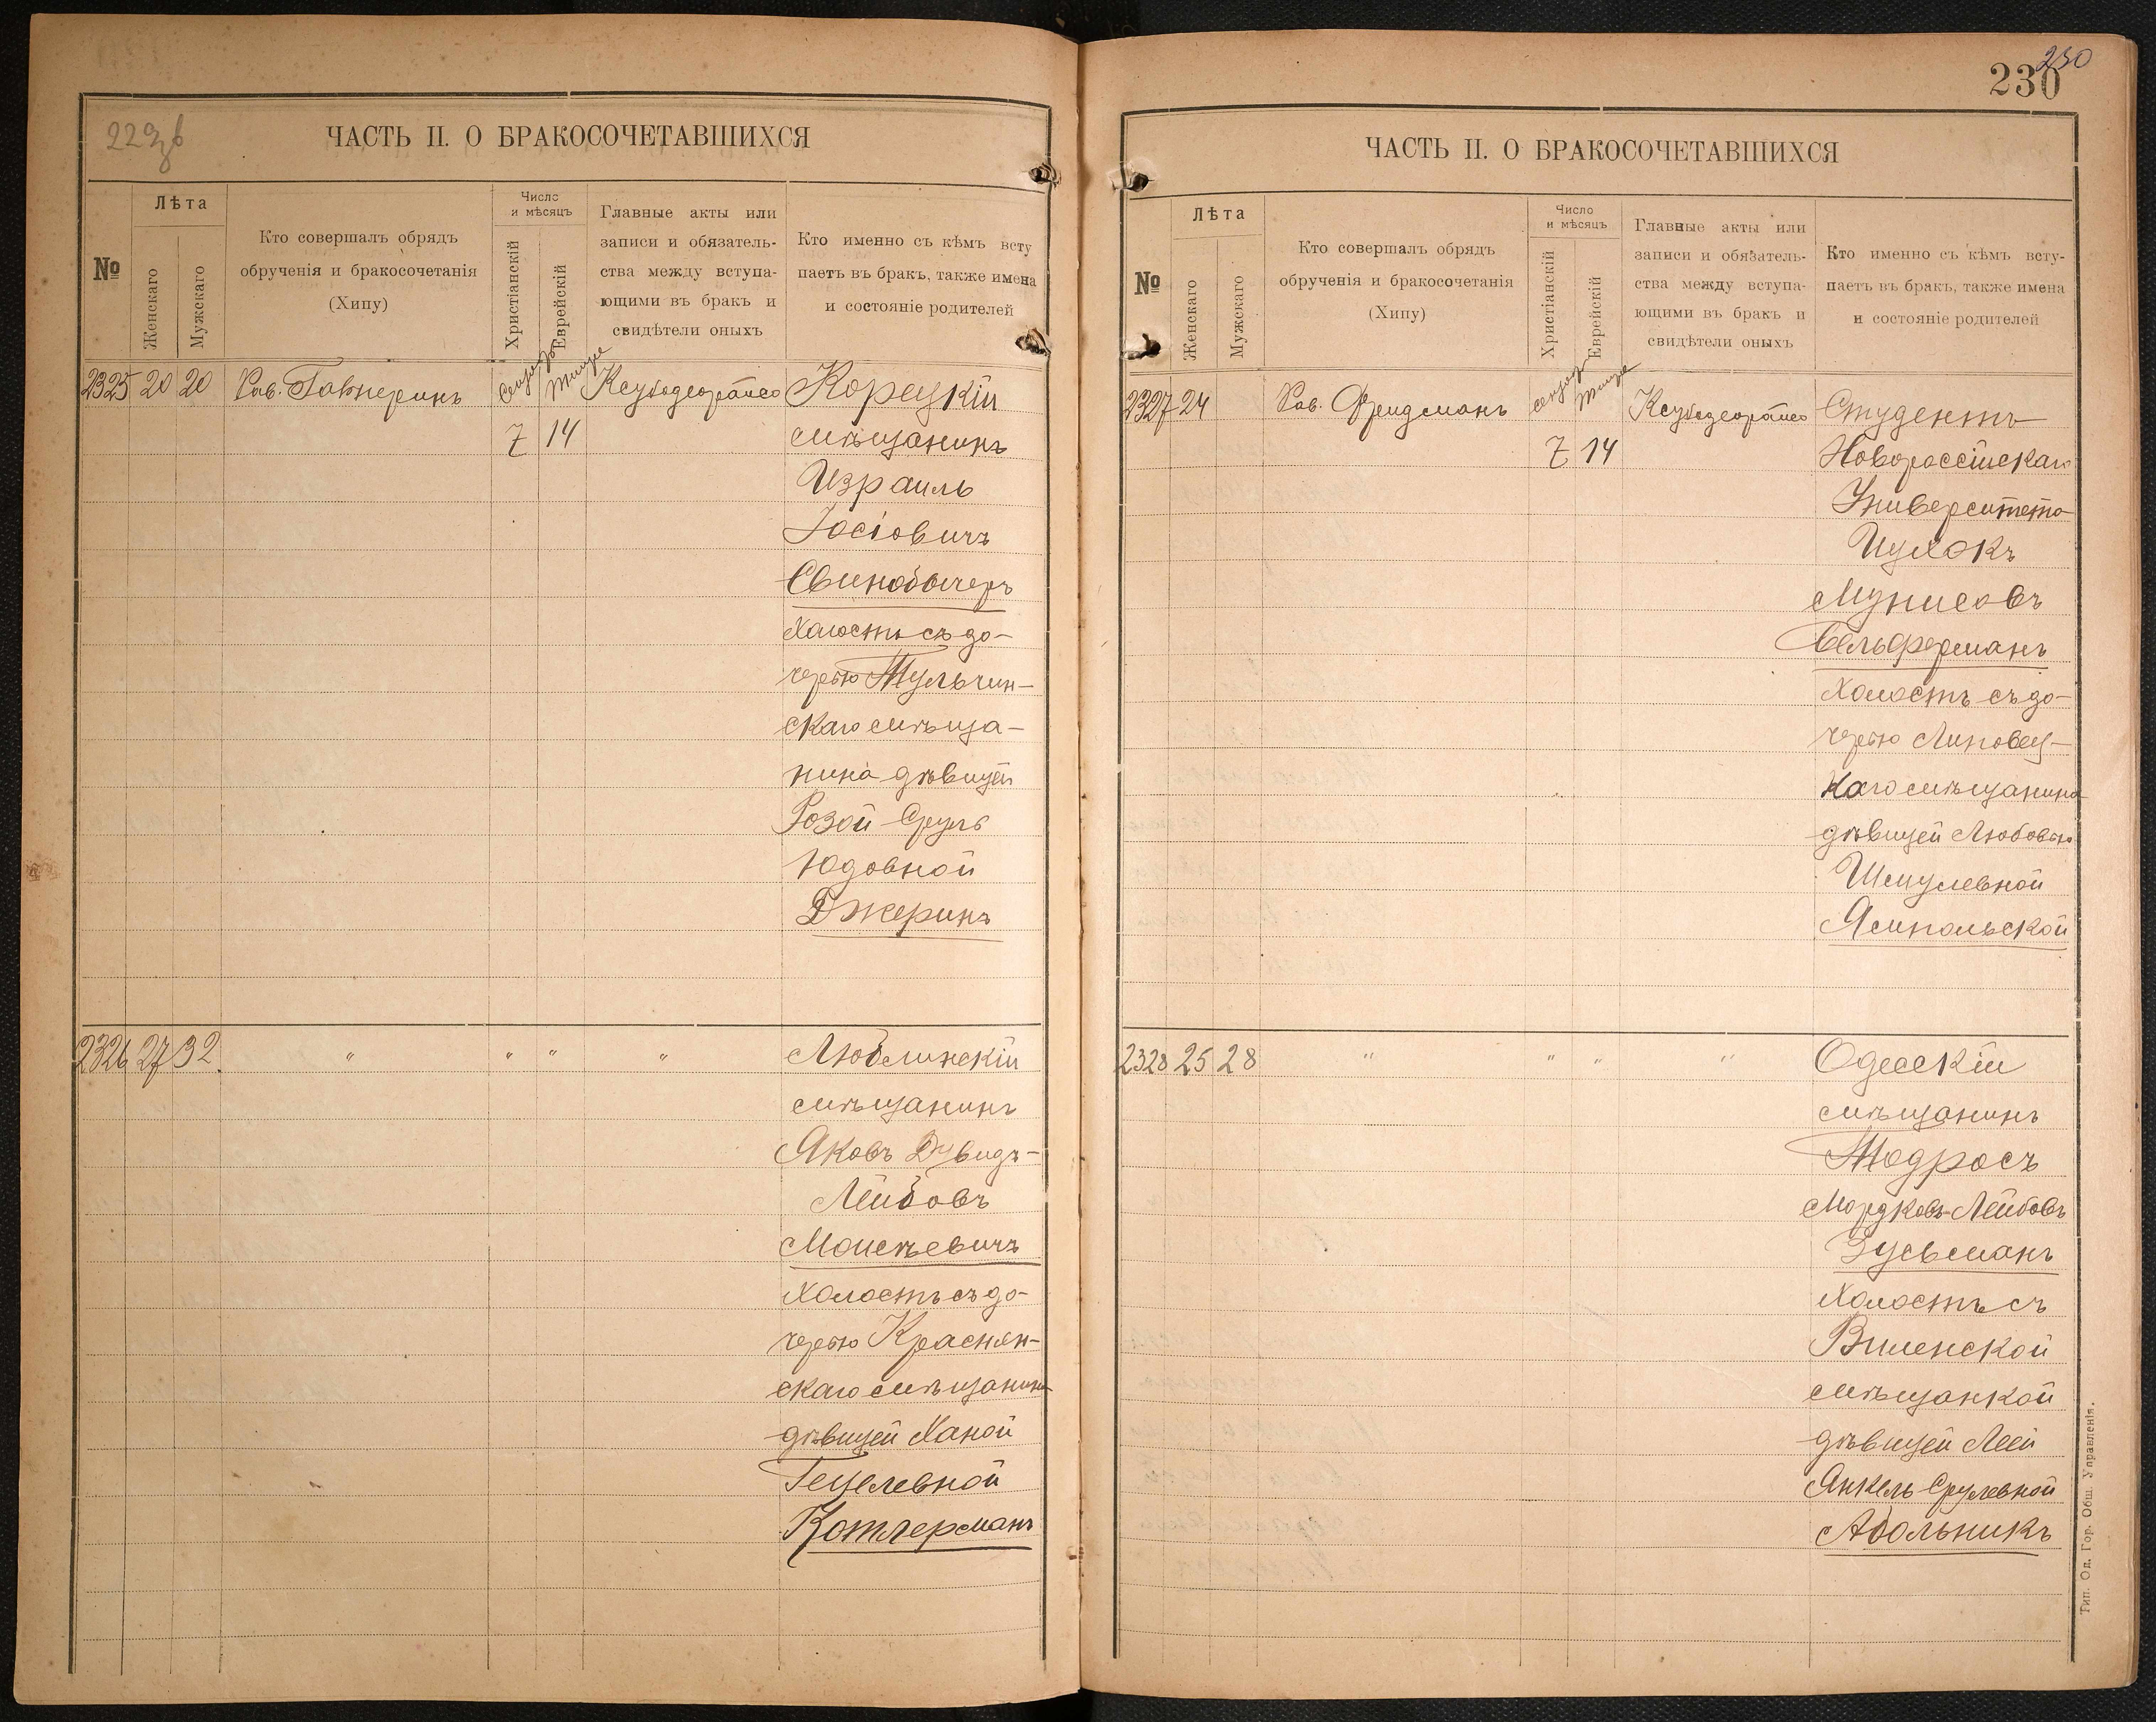 229 об
ЧАСТЬ II. О БРАКОСОЧЕТАВШИХСЯ
№
Лѣта
Женскаго
Мужскаго
Кто совершалъ обрядъ
обрученія и бракосочетанія
(Хипу)
Число
и мѣсяцъ
Христіанскій
Еврейскій
Главные акты или
записи и обязатель-
ства между вступа-
ющими въ бракъ и
свидѣтели оныхъ
Кто именно съ кѣмъ всту
паетъ въ бракъ, также имена
и состояніе родителей
2325 20 20 Рав. Корецкій
7 14 мѣщанинъ
Израиль
Іосіовичъ
Свинобычеръ
холостъ съ до-
черью Тульчин-
скаго мѣща-
нина дѣвицей
Розой-Сруль
Юдовной
Джеринъ
2326 27 32. " " " " Люблинскій
мѣщанинъ
Яковъ Дувидъ-
Лейбовъ
Моисѣевичъ
холостъ съ до-
черью Краснян-
скаго мѣщанина
дѣвицей Ханой
Гецелевной
Котлерманъ
230
230
ЧАСТЬ II. О БРАКОСОЧЕТАВШИХСЯ
№
Лѣта
Женскаго
Мужскаго
Кто совершалъ обрядъ
обрученія и бракосочетанія
(Хипу)
Число
и мѣсяцъ
Христіанскій
Еврейскій
Главные акты или
записи и обязатель-
ства между вступа-
ющими въ бракъ и
свидѣтели оныхъ
Кто именно съ кѣмъ всту-
паетъ въ бракъ, также имена
и состояніе родителей
2327 24 Рав. Фридманъ Студентъ
7 14 Новороссійскаго
Университета
Ицхокъ
Мунисовъ
Гельферманъ
холостъ съ до-
черью Липовец-
каго мѣщанина
дѣвицей Любовью
Шмулевной
Ямпольской
2328 25 28 " " " " Одесскій
мѣщанинъ
Тодросъ
Мордковъ-Лейбовъ
Зусьманъ
холостъ съ
Виленской
мѣщанкой
дѣвицей Леей
Янкель-Срулевной
Абольникъ
Тип. Од. Гор. Общ. Управленія.